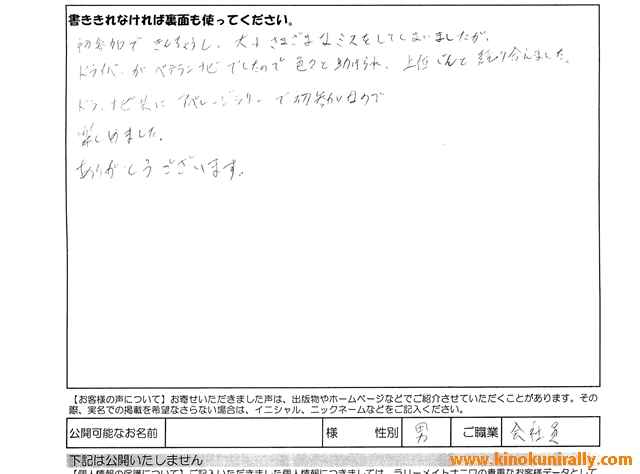 書ききれなければ裏面も使ってください。
初参加できんちょうし、大小さまざまなミスをしてしまいましたが、
ドライバーがベテランナビでしたので色々と助けられ、上位じんと競り合えました。
ドラ、ナビ共にアベレージラリーで初参加なので
楽しめました。
ありがとうございます。
【お客様の声について】お寄せいただきました声は、出版物やホームページなどでご紹介させていただくことがあります。その
際、実名での掲載を希望なさらない場合は、イニシャル、ニックネームなどをご記入ください。
公開可能なお名前 様 性別 男 ご職業 会社員
下記は公開いたしません
www.kinokunirally.com
【個人情報の保護について】ご記入いただきました個人情報につきましては、ラリーメイトナニワの貴重なお客様データとして